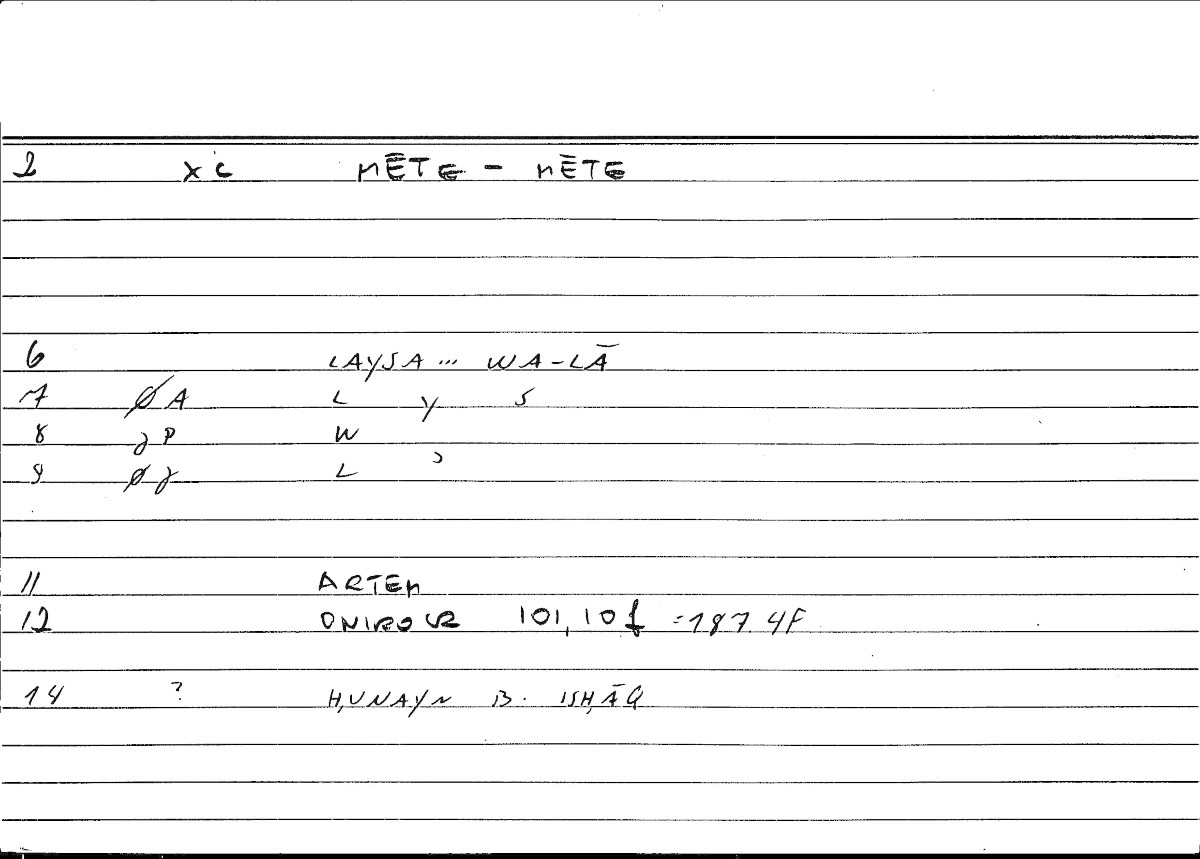 2 XC MĒTE - MĒTE
6 LAYSA ... WA-LĀ
7 ØA L Y S
8 JP W
9 ØJ L ʾ
11 ARTEM
12 ONIROCR 101,10f =187.4F
14 ? H,UNAYN B. ISH,ĀQ